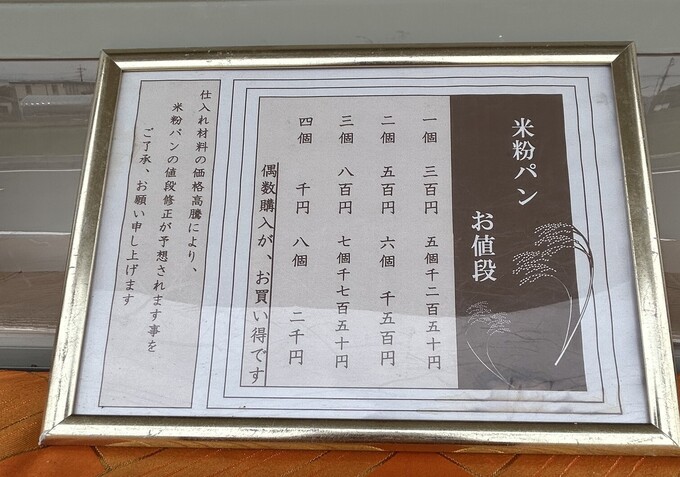 米粉パン
お値段
一個 三百円 五個千二百五十円
二個 五百円 六個 千五百円
三個 八百円 七個千七百五十円
四個 千円 八個 二千円
偶数購入が、お買い得です
仕入れ材料の価格高騰により、
米粉パンの値段修正が予想されます事を
ご了承、お願い申し上げます